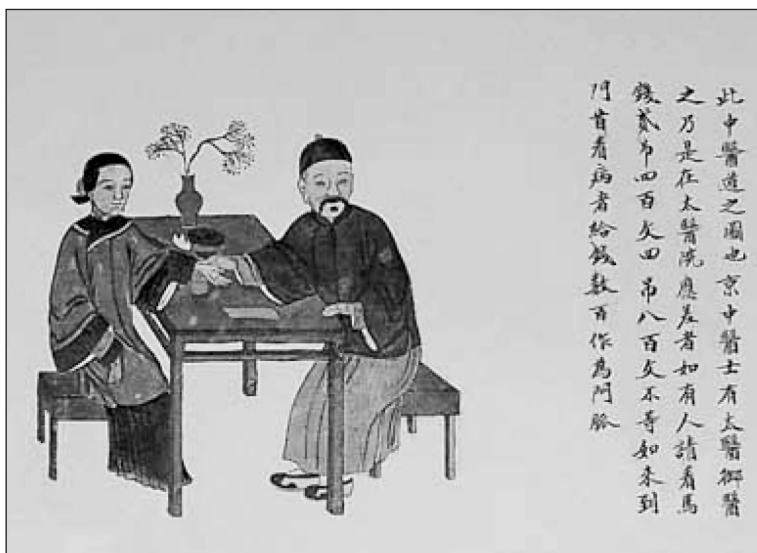 此中醫道之圖也京中醫士有太醫御醫
之乃是在太醫院應差者如有人請看馬
錢貳吊四百文四吊八百文不等如来到
門首看病者給錢數百作為門脈